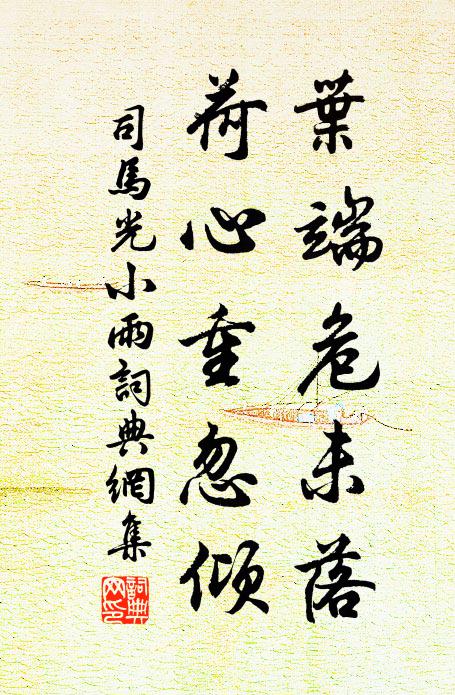 葉端危未落
荷心重忽傾
司馬光小雨詞典網集
詞典网印